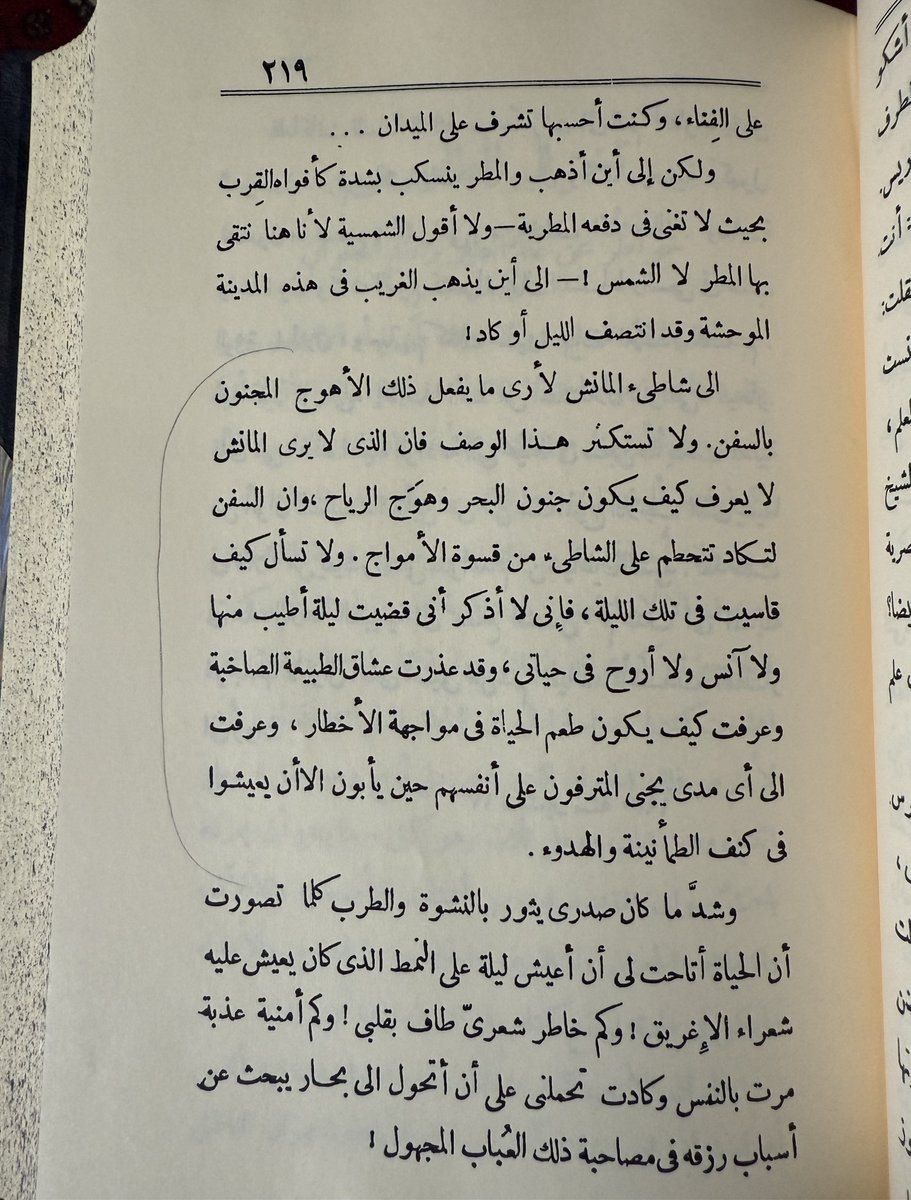 ٢١٩
على الفِناء، وكنت أحسبها تشرف على الميدان . . .
ولكن إلى أين أذهب والمطر ينسكب بشدة كأفواه القِرب
بحيث لا تغنى فى دفعه المطرية — ولا أقول الشمسية لأنا هنا نتقى
بها المطر لا الشمس ! — الى أين يذهب الغريب فى هذه المدينة
الموحشة وقد انتصف الليل أو كاد!
الى شاطىء المانش لأرى ما يفعل ذلك الأهوج المجنون
بالسفن. ولا تستكثر هذا الوصف فان الذى لا يرى المانش
لا يعرف كيف يكون جنون البحر وهوَج الرياح ،وان السفن
لتكاد تتحطم على الشاطىء من قسوة الأمواج . ولا تسأل كيف
قاسيت فى تلك الليلة، فإنى لا أذكر أنى قضيت ليلة أطيب منها
ولا آنس ولا أروح فى حياتى، وقد عذرت عشاق الطبيعة الصاخبة
وعرفت كيف يكون طعم الحياة فى مواجهة الأخطار ، وعرفت
الى أى مدى يجنى المترفون على أنفسهم حين يأبون الاأن يعيشوا
فى كنف الطمأنينة والهدوء .
وشدَّ ما كان صدرى يثور بالنشوة والطرب كلما تصورت
أن الحياة أتاحت لى أن أعيش ليلة على النمط الذى كان يعيش عليه
شعراء الإغريق ! وكم خاطر شعرىّ طاف بقلبي ! وكم أمنية عذبة
مرت بالنفس وكادت تحملنى على أن أتحول الى بحار يبحث عن
أسباب رزقه فى مصاحبة ذلك العُباب المجهول !
أشكو
أنت
قلت:
الشيخ
علم